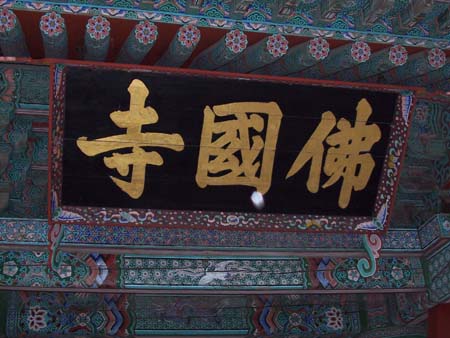 佛國寺